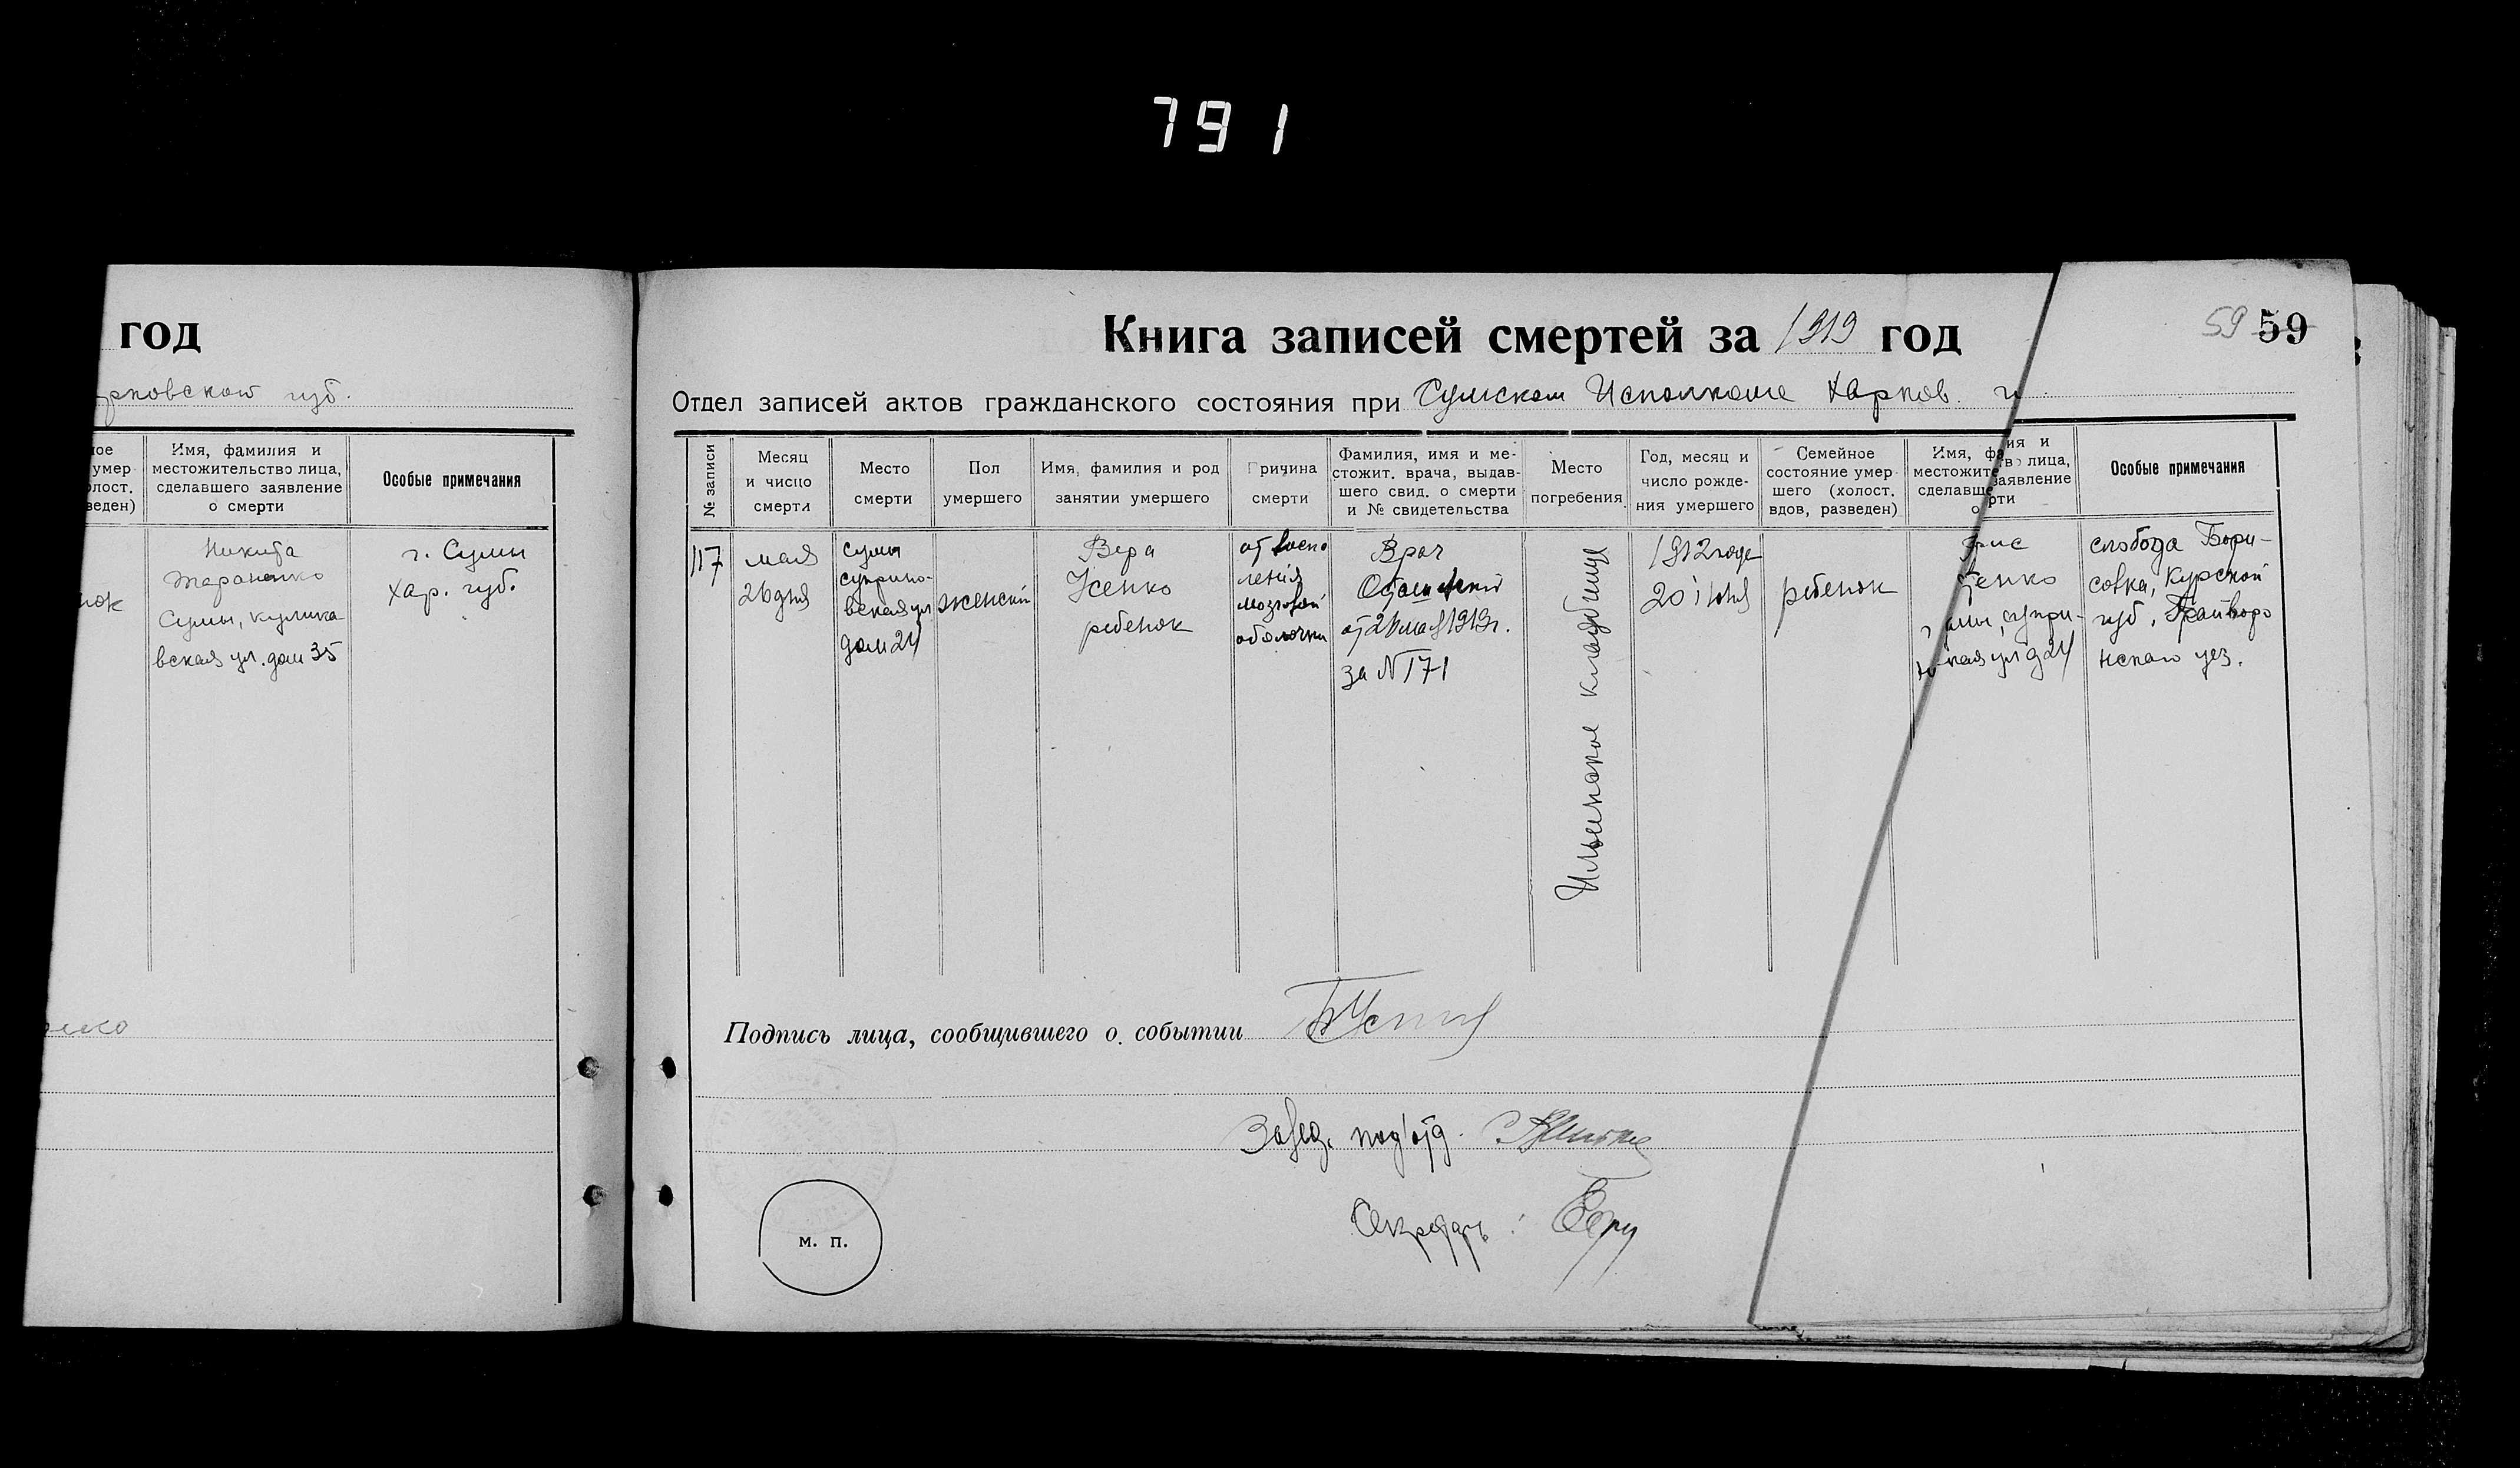 791
год
губ.
Имя, фамилия и
местожительство лица,
сделавшего заявление
о смерти
Особые примечания
Никита
Тараненко
Сумы, кулика-
вская ул. дом 35
г. Сумы
Хар. губ.
59 59
Книга записей смертей за 1919 год
Отдел записей актов гражданского состояния при Сумском Исполкоме Харков. г
№ записи
Месяц
и число
смерти
Место
смерти
Пол
умершего
Имя, фамилия и род
занятий умершего
Причина
смерти
Фамилия, имя и ме-
стожит. врача, выдав-
шего свид. о смерти
и № свидетельства
Место
погребения
Год, месяц и
число рожде-
ния умершего
Семейное
состояние умер
шего (холост.
вдов, разведен)
Имя, фа ия и
местожите тво лица,
сделавше заявление
о рти
Особые примечания
117
мая
26 дня
Сумы
суприно-
вская ул
дом 24
женскій
Вера
Усенко
ребенок
от воспа
ленія
мозговой
оболочки
Врач
от 26 мая 1919 г.
за N 171
Ильинское кладбище
1912 года
20 іюня
ребенок
енко
супри-
кая ул д 24
слобода Бори-
совка, Курской
губ, Грайворо
нскаго уез.
Подпись лица, сообщившего о событии
Завед. под'отд.
Секретарь :
м. п.